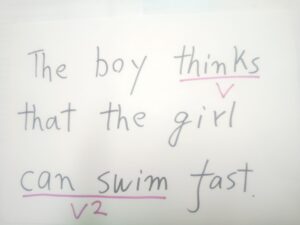 The boy thinks
V
that the girl
can swim fast.
V2